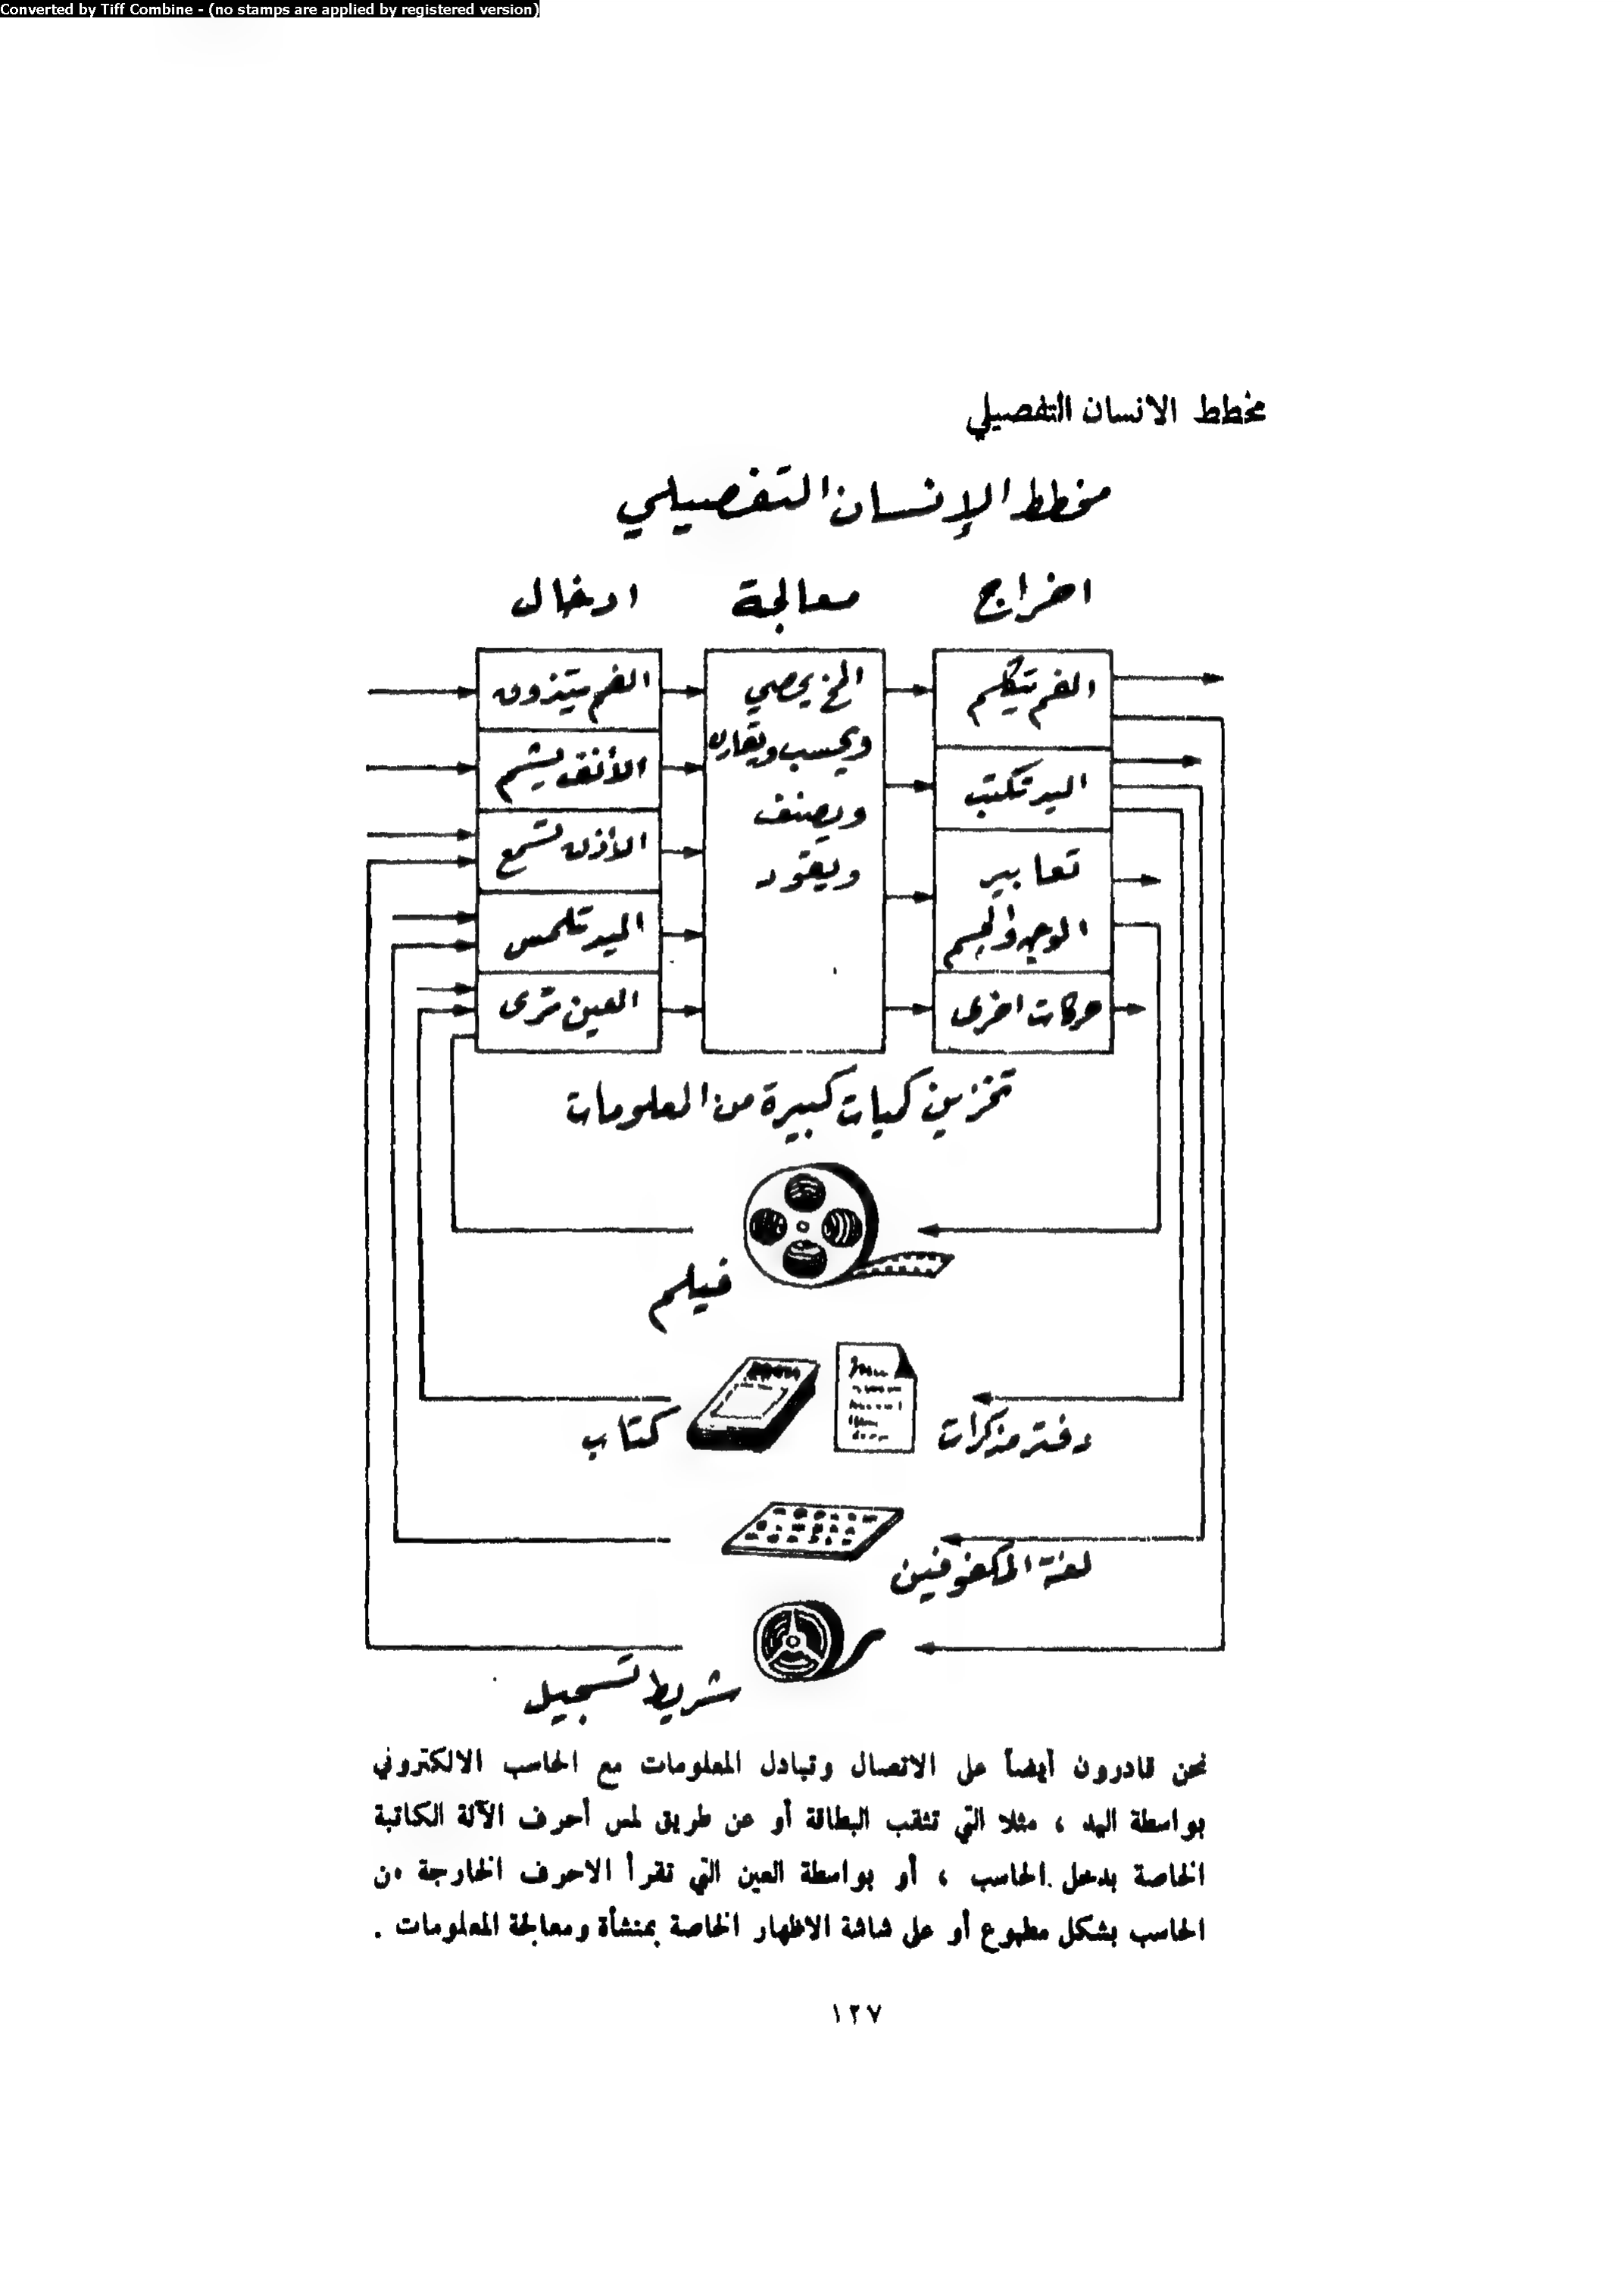 Converted by Tiff Combine - (no stamps are applied by registered version)
مخطط الانسان التفصيلي
مخطط الإنسان التفصيلي
اخراج
معالجة
ادخال
الفم يتكلم
اليد تكتب
تعابير
الوجه والجسم
حركات اخرى
المخ يحصي
ويحسب ويقارن
ويصنف
ويقود
الفم يتذوق
الأنف يشم
الأذن تسمع
اليد تلمس
العين ترى
تخزين كميات كبيرة من المعلومات
فيلم
دفتر مذكرات
كتاب
لغة المكفوفين
شريط تسجيل
نحن قادرون أيضاً على الاتصال وتبادل المعلومات مع الحاسب الالكتروني
بواسطة اليد ، مثلا التي تثقب البطاقة أو عن طريق لمس أحرف الآلة الكاتبة
الخاصة بدخل الحاسب ، أو بواسطة العين التي تقرأ الاحرف الخارجة من
الحاسب بشكل مطبوع أو على شاشة الاظهار الخاصة بمنشأة ومعالجة المعلومات .
١٢٧